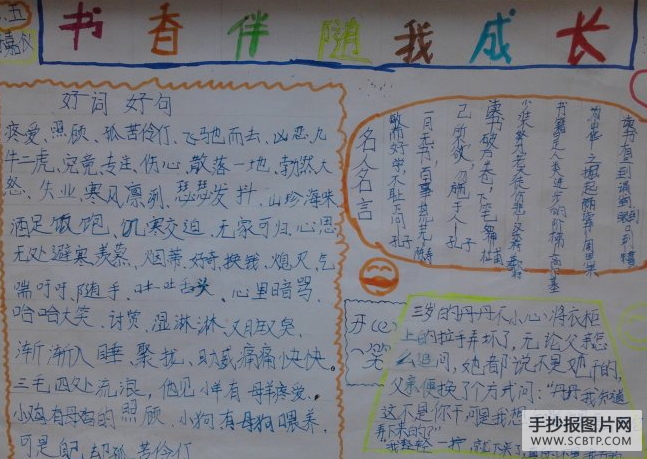 书香伴随我成长
五
好词 好句
疼爱、照顾、孤苦伶仃、飞驰而去、凶恶、九
牛二虎、究竟、专注、伤心、散落一地、勃然大
怒、失业、寒风凛冽、瑟瑟发抖、山珍海味、
酒足饭饱、饥寒交迫、无家可归、心思
无处避寒、羡慕、烟蒂、好奇、换钱、熄灭、气
喘吁吁、随手、吐吐舌头、心里暗骂、
哈哈大笑、讨赏、湿淋淋、又脏又臭、
渐渐入睡、聚拢、痛痛快快。
三毛四处流浪,他见小羊有母羊疼爱、
小鸡有母鸡的照顾、小狗有母狗喂养,
可是自己却孤苦伶仃
名人名言
敏而好学,不耻下问 孔子
己所不欲,勿施于人 孔子
读书破万卷,下笔如有神 杜甫
书籍是人类进步的阶梯 高尔基
为中华之崛起而读书 周恩来
开心一笑
三岁的丹丹不小心将衣柜
上的拉手弄坏了,无论父亲怎
么追问,她都说不是她干的,
父亲便换了个方式问:“丹丹,我知道
这不是你干的,可是我想
弄下来的?”
我轻轻一拧,就下来了
手抄报图片网
WWW.SCBTP.COM